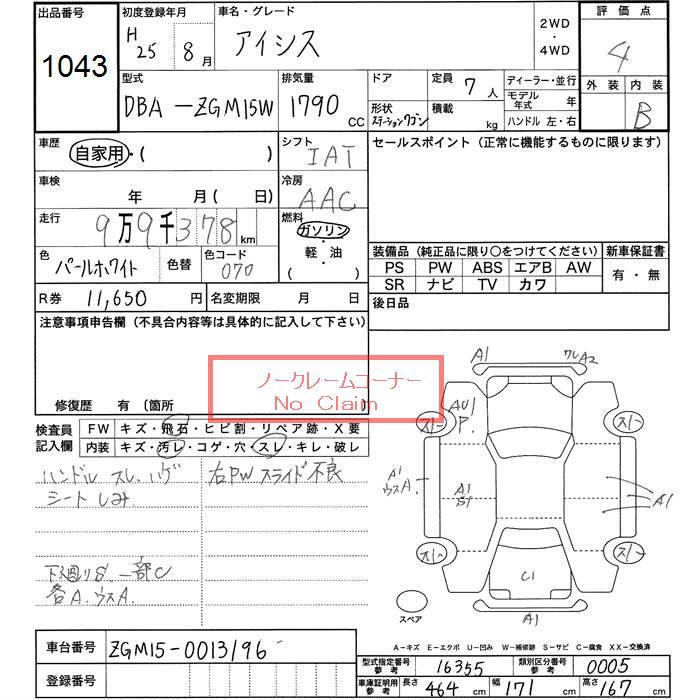 出品番号 初度登録年月 車名・グレード 2WD・4WD 評価点
1043 H25 8月 アイシス 4
外装 内装
B
型式 排気量 ドア 定員 7人 ディーラー・並行
DBA-ZGM15W 1790 CC 形状 ステーションワゴン 積載 kg モデル年式 年
ハンドル 左・右
車歴 シフト セールスポイント(正常に機能するものに限ります)
自家用・( ) IAT
車検 年 月(日) 冷房 AAC
走行 9万9千378km 燃料
ガソリン・軽・油( )
色 パールホワイト 色替 色コード 070
装備品(純正品に限り○をつけてください) 新車保証書
PS PW ABS エアB AW 有・無
SR ナビ TV カワ
R券 11,650円 名変期限 月 日 後日品
注意事項申告欄(不具合内容等は具体的に記入して下さい)
ノークレームコーナー
No Claim
修復歴 有(箇所 )
検査員記入欄 FW キズ・飛石・ヒビ割・リペア跡・X要
内装 キズ・汚レ・コゲ・穴・スレ・キレ・破レ
ハンドル スレ、ハゲ 右PWスライド不良
シートしみ
下廻りS 一部C
各A.ウスA.
A1 クレA2
AU1 P.
スレ スレ
A1 ウスA. A1 B1 A1
スレ スレ
C1
スペア A1
A-キズ E-エクボ U-凹み W-補修跡 S-サビ C-腐食 XX-交換済
車台番号 ZGM15-0013196
登録番号
型式指定番号 参考 16355 類別区分番号 参考 0005
車庫証明用 参考 長さ 464cm 幅 171cm 高さ 167cm